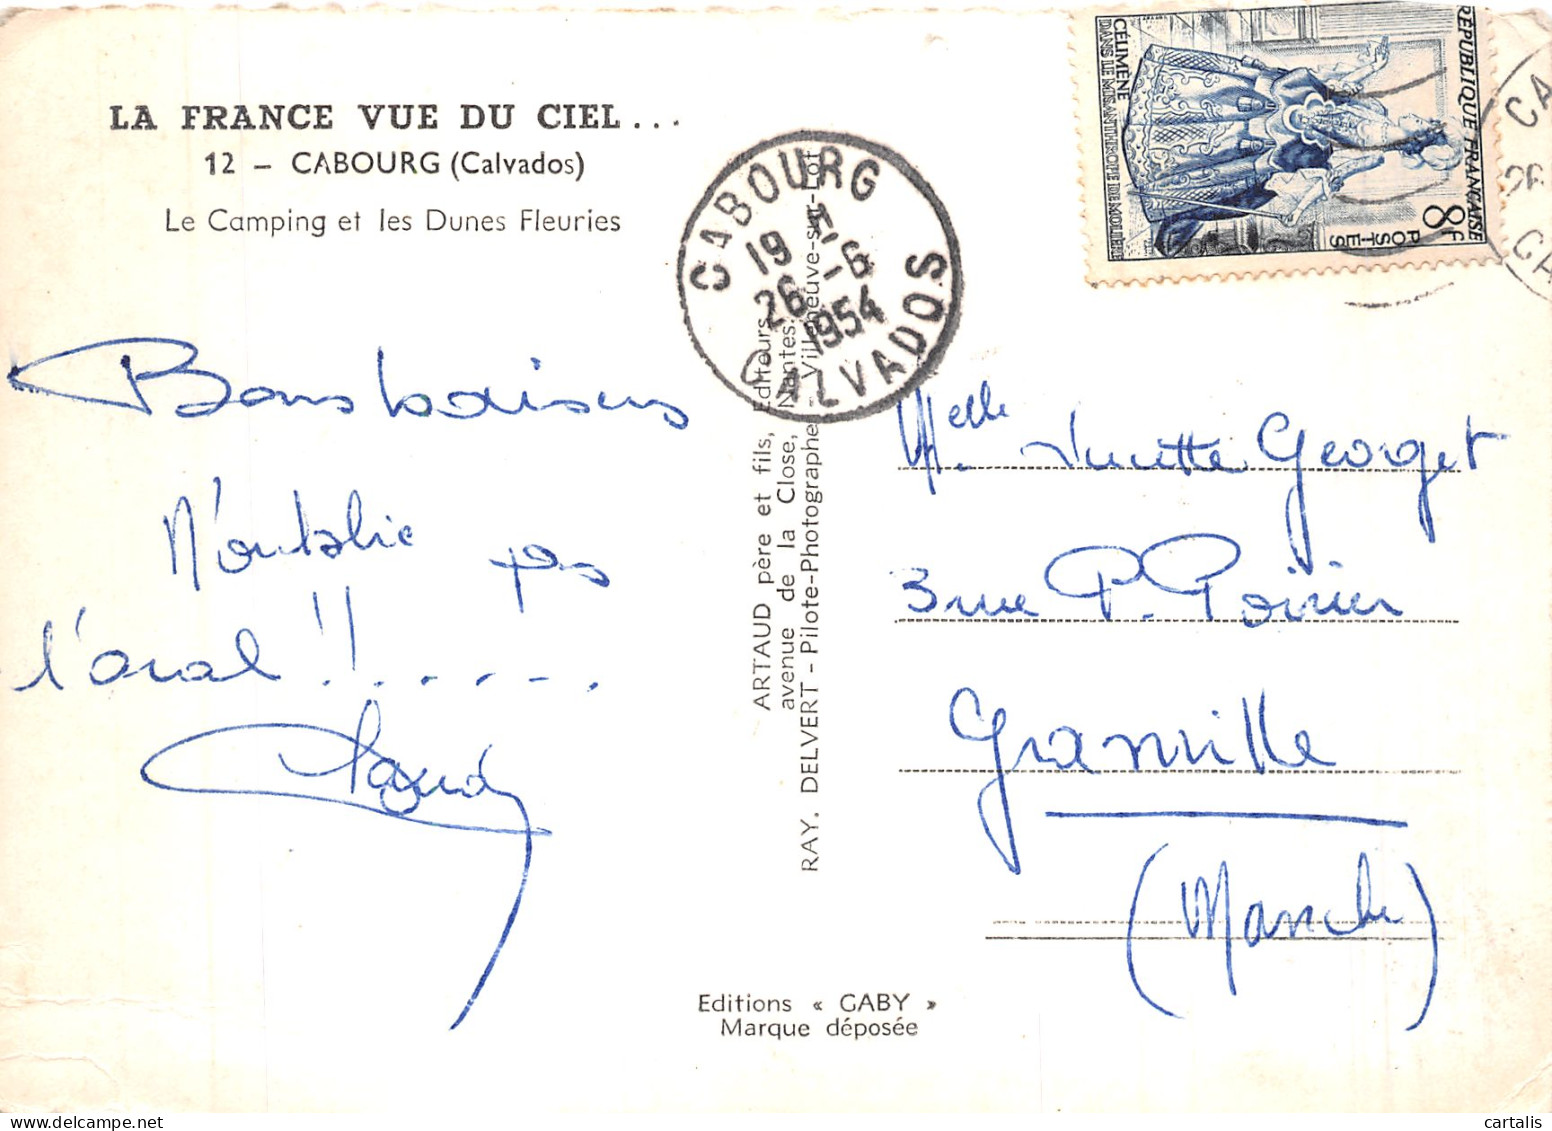 LA FRANCE VUE DU CIEL...
12 - CABOURG (Calvados)
Le Camping et les Dunes Fleuries
Bons baisers
N'oublie pas
l'oral !! . . . . .
Claudy
ARTAUD père et fils, Editeurs
avenue de la Close, Nantes.
RAY. DELVERT - Pilote-Photographe Villeneuve-sur-Lot
CABOURG
19 H
26 -6
1954
CALVADOS
RÉPUBLIQUE FRANÇAISE
8F
POSTES
CÉLIMÈNE
DANS LE MISANTHROPE DE MOLIÈRE
CA
26
CA
Melle. Lucette Georget
3 rue P. Poirier
Granville
(Manche)
Editions « GABY »
Marque déposée
© delcampe.net
cartalis